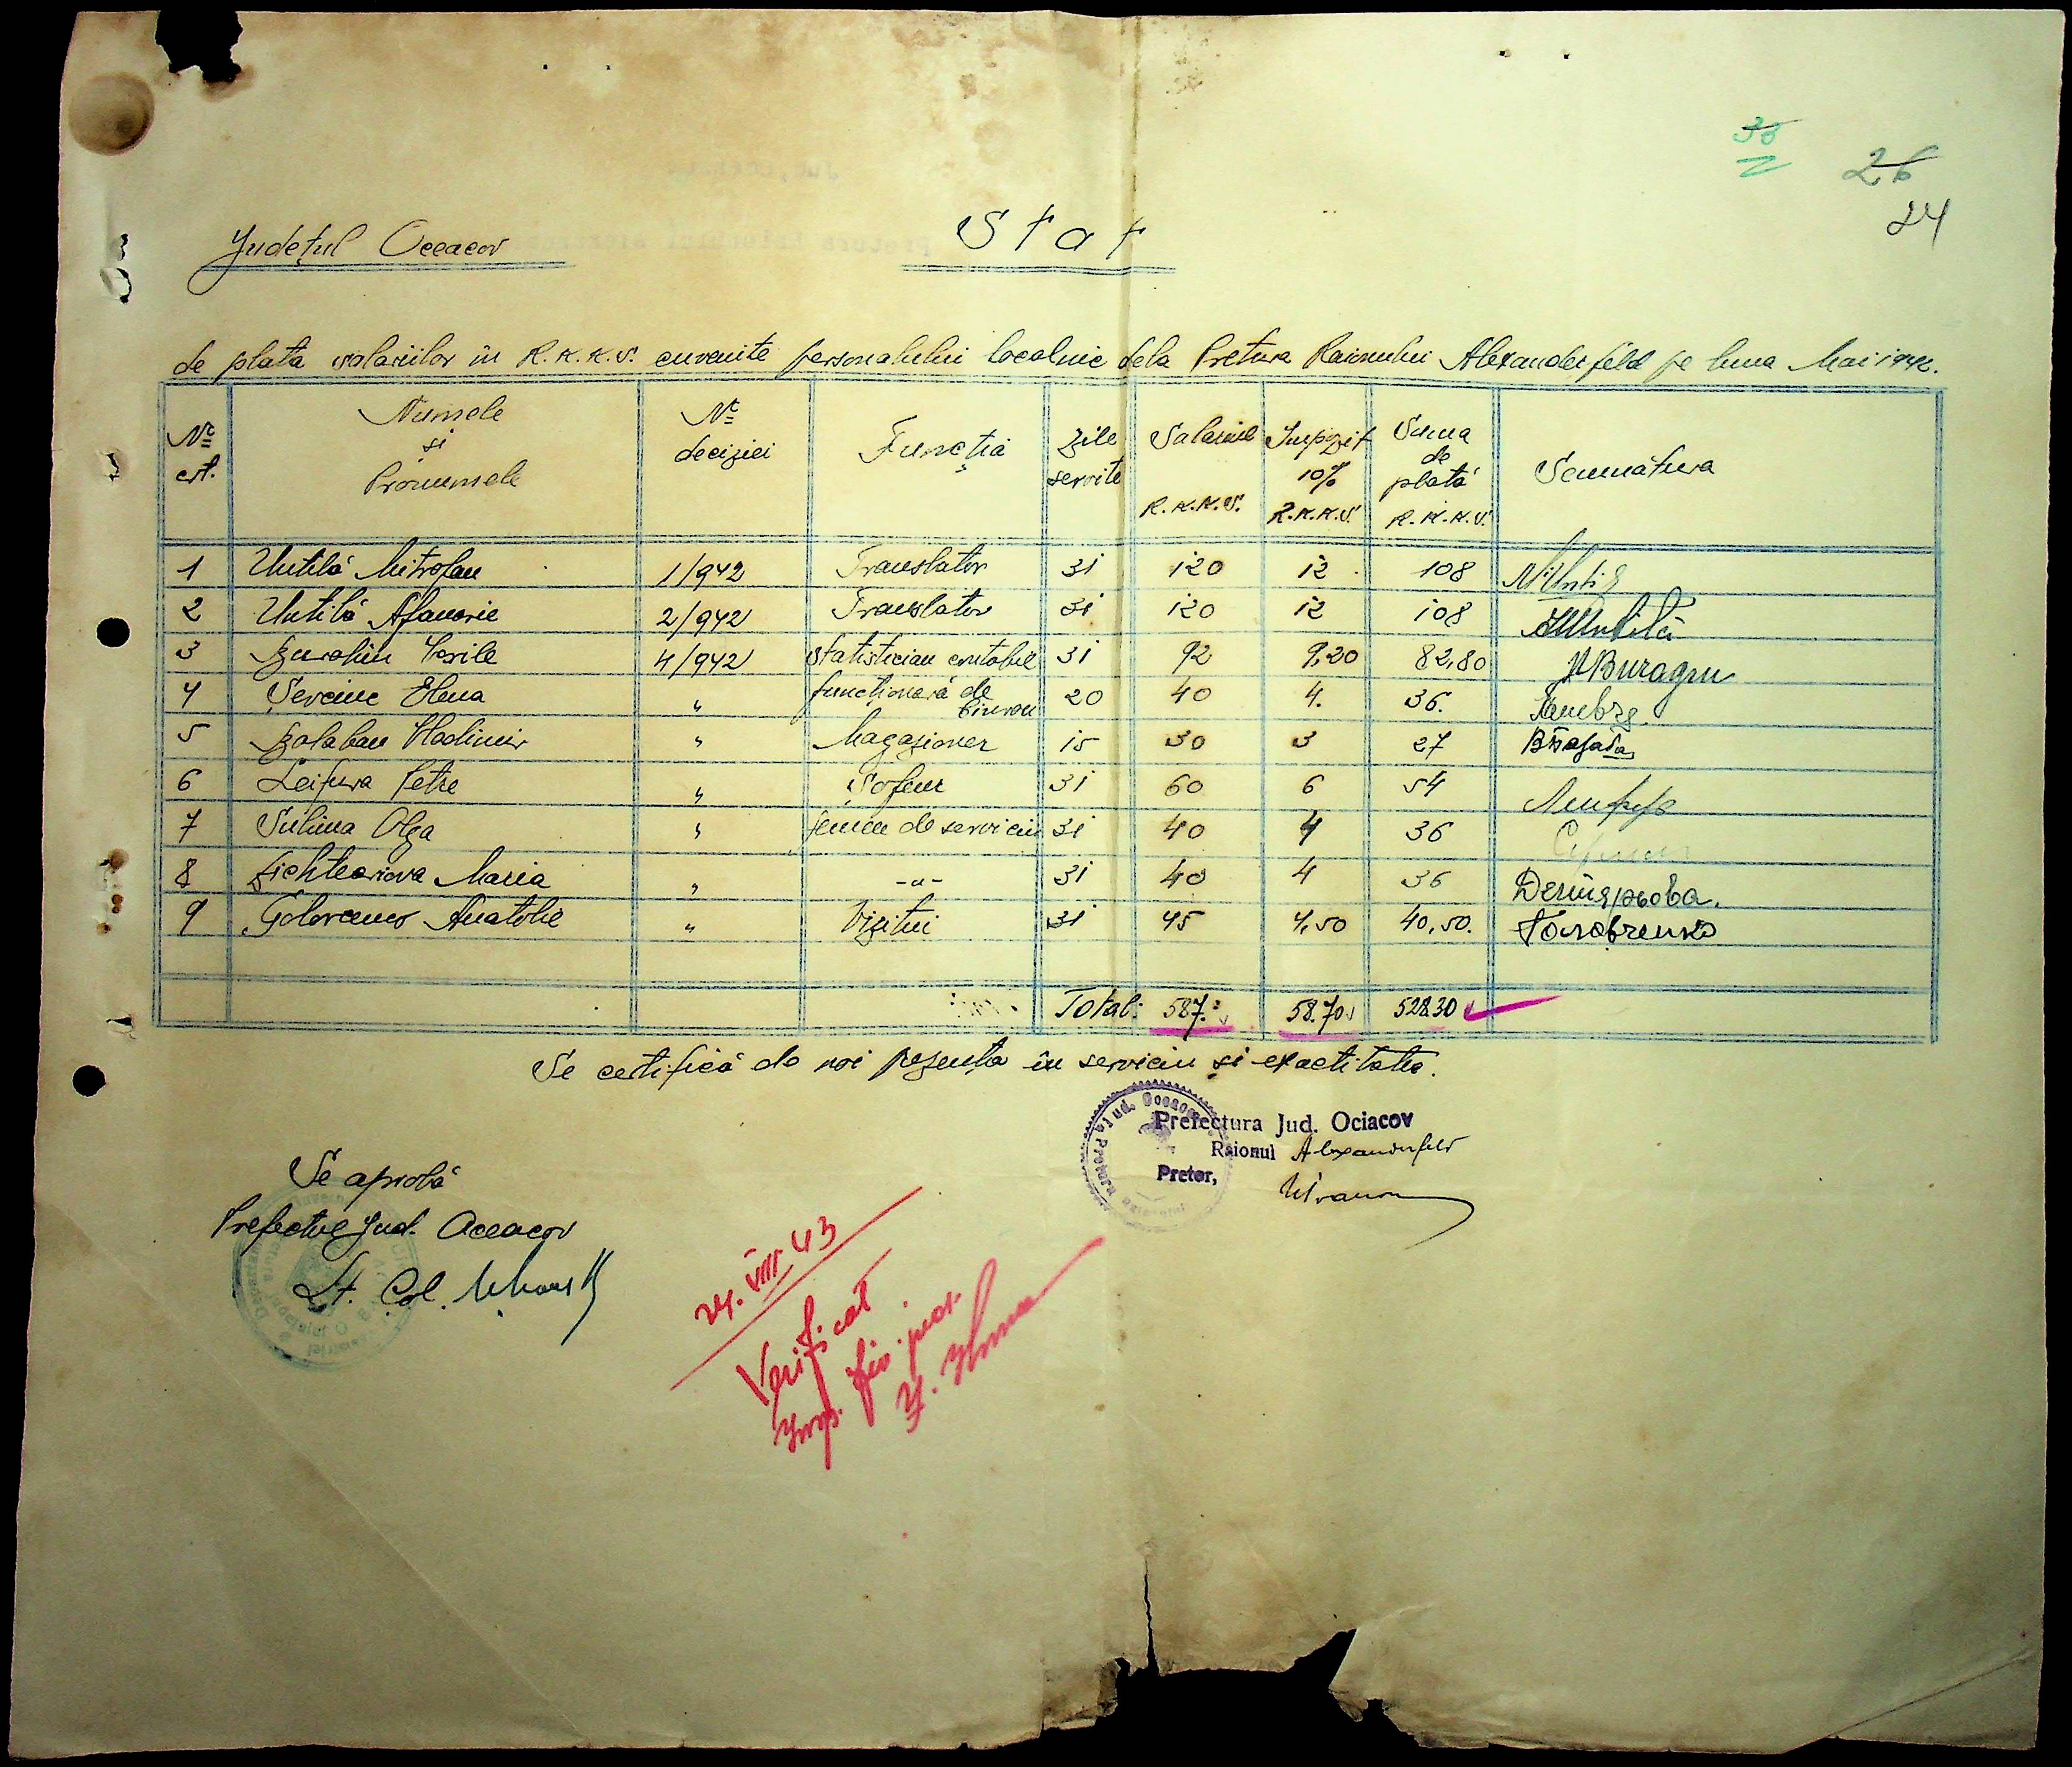 36
26
24
Județul Oceacov
Stat
de plata salariilor în R.K.K.S. cuvenite personalului localnic dela Pretura Raionului Alexanderfeld pe luna Mai 1942.
No crt. Numele și Pronumele No deciziei Funcția Zile servite Salariul R.K.K.S. Impozit 10% R.K.K.S. Suma de plată R.K.K.S. Semnătura
1 Untilă Mitrofan 1/942 Translator 31 120 12 108
2 Untilă Afanasie 2/942 Translator 31 120 12 108 Untilă
3 Vasile 4/942 Statistician contabil 31 92 9,20 82,80
4 Elena " funcționară de birou 20 40 4. 36.
5 Balaban Vladimir " Magazioner 15 30 3 27
6 Leifura Petre " Șofeur 31 60 6 54
7 Sulima Olga " femeie de serviciu 31 40 4 36
8 Maria " -"- 31 40 4 36
9 Golovcenco Anatolie " Vizitiu 31 45 4,50 40,50.
Total: 587. 58.70 528.30
Se certifică de noi prezența în serviciu și exactitatea.
Prefectura Jud. Ociacov
Raionul Alexanderfeld
Pretor,
Se aprobă
Prefectul Jud. Oceacov
Lt. Col.
24. VIII 43
Verificat